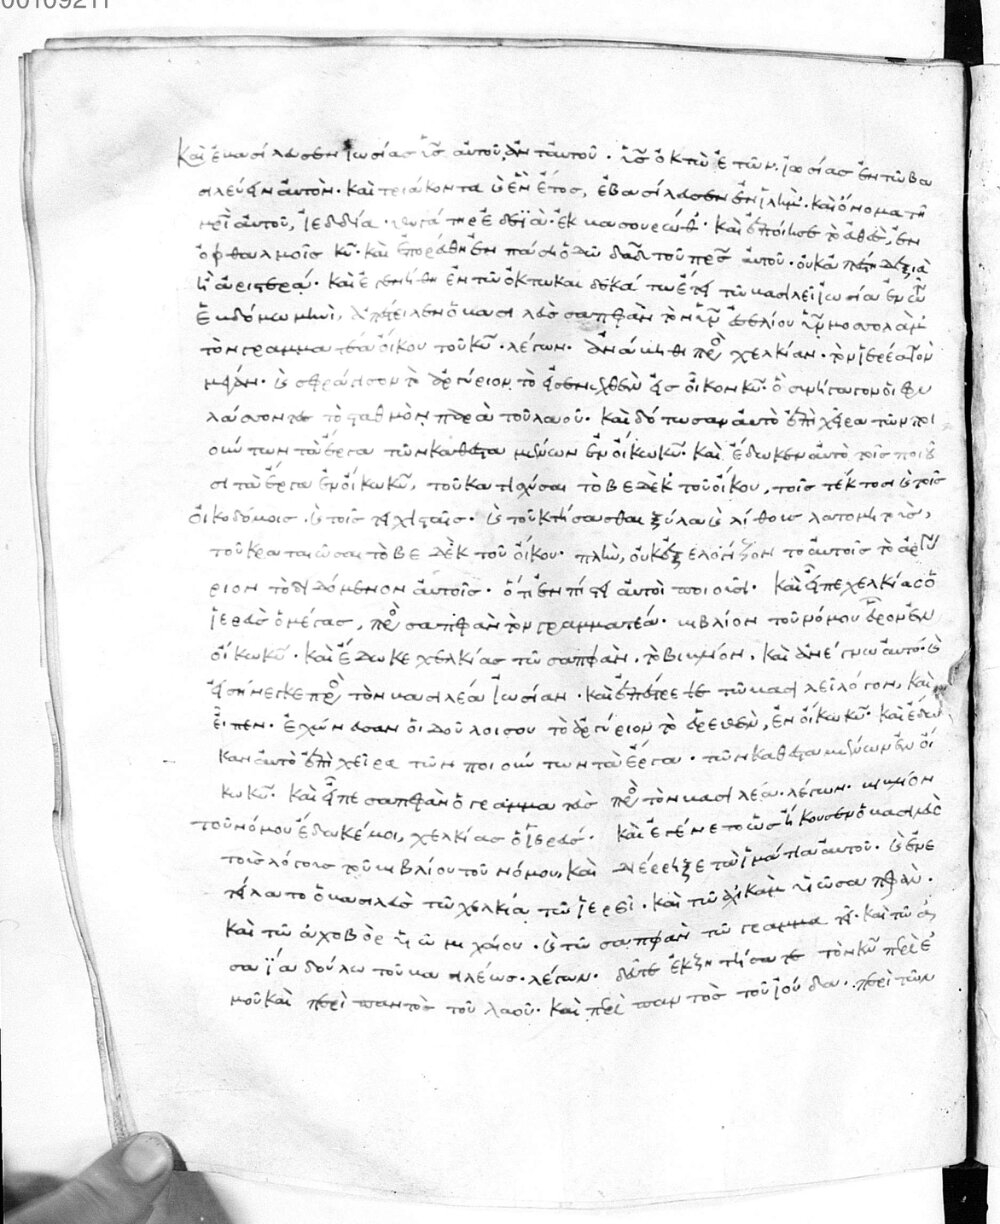 00109211
Καὶ ἐβασίλευσεν Ἰωσίας υἱὸς αὐτοῦ ἀντ' αὐτοῦ. υἱὸς ὀκτὼ ἐτῶν ἰωσίας ἐν τῶ βα
σιλεύειν αὐτὸν. καὶ τριάκοντα καὶ ἓν ἔτος, ἐβασίλευσεν ἐν ἰλημ. καὶ ὄνομα τῆ
μρὶ αὐτοῦ, ἰεδδία. θυγάτηρ ἐδεϊὰ ἐκ βασουρώθ. καὶ ἐποίησε τὸ εὐθὲς ἐν
ὀφθαλμοῖς κυ. καὶ ἐπορεύθη ἐν πάση ὁδῶ δαδ τοῦ πρς αὐτοῦ. οὐκ ἀπέστη δεξιὰ
ἢ ἀριστερά. καὶ ἐγενήθη ἐν τῶ ὀκτωκαιδεκάτω ἔτει τῶ βασιλεῖ ἰωσία ἐν τῶ
ἑβδόμω μηνὶ, ἀπέστειλεν ὁ βασιλεὺς σαπφὰν τὸν υἱὸν ἐσελίου υἱοῦ μοσολὰμ
τὸν γραμματέα οἴκου τοῦ κυ λέγων. ἀνάβηθι πρὸς χελκίαν τὸν ἱερέα τὸν
μέγαν. καὶ σφράγισον τὸ ἀργύριον τὸ εἰσενεχθὲν εἰς οἶκον κυ. ὃ συνήγαγον οἱ φυ
λάσσοντες τὸ σταθμὸν παρὰ τοῦ λαοῦ. καὶ δότωσαν αὐτὸ ἐπὶ χεῖρα τῶν ποι
ούντων τὰ ἔργα τῶν καθεσταμένων ἐν οἴκω κυ. καὶ ἔδωκεν αὐτὸ τοῖς ποιοῦ
σι τὰ ἔργα ἐν οἴκω κυ, τοῦ κατισχύσαι τὸ βεδὲκ τοῦ οἴκου, τοῖς τέκτοσι καὶ τοῖς
οἰκοδόμοις. καὶ τοῖς τειχισταῖς. καὶ τοῦ κτήσασθαι ξύλα καὶ λίθους λατομητοὺς,
τοῦ κραταιῶσαι τὸ βεδὲκ τοῦ οἴκου. πλὴν, οὐκ ἐξελογίζοντο αὐτοῖς τὸ ἀργύ
ριον τὸ διδόμενον αὐτοῖς. ὅτι ἐν πίστει αὐτοὶ ποιοῦσι. καὶ εἶπε χελκίας ὁ
ἱερεὺς ὁ μέγας, πρὸς σαπφὰν τὸν γραμματέα. βιβλίον τοῦ νόμου εὗρον ἐν
οἴκω κυ. καὶ ἔδωκε χελκίας τῶ σαπφὰν τὸ βιβλίον. καὶ ἀνέγνω αὐτό. καὶ
εἰσήνεγκε πρὸς τὸν βασιλέα ἰωσίαν. καὶ ἐπέστρεψε τῶ βασιλεῖ λόγον, καὶ
εἶπεν. ἐχώνευσαν οἱ δοῦλοι σου τὸ ἀργύριον τὸ εὑρεθὲν, ἐν οἴκω κυ. καὶ ἔδω
καν αὐτὸ ἐπὶ χεῖρα τῶν ποιούντων τὰ ἔργα. τῶν καθεσταμένων ἐν οἴ
κω κυ. καὶ εἶπε σαπφὰν ὁ γραμματεὺς πρὸς τὸν βασιλέα λέγων. βιβλίον
τοῦ νόμου ἔδωκέ μοι, χελκίας ὁ ἱερεύς. καὶ ἐγένετο ὡς ἤκουσεν ὁ βασιλεὺς
τοὺς λόγους τοῦ βιβλίου τοῦ νόμου, καὶ διέρρηξε τὰ ἱμάτια αὐτοῦ. καὶ ἐνε
τείλατο ὁ βασιλεὺς τῶ χελκία τῶ ἱερεῖ. καὶ τῶ ἀχικὰμ υἱῶ σαπφὰν.
καὶ τῶ ἀχοβὸρ υἱῶ μιχαίου. καὶ τῶ σαπφὰν τῶ γραμματεῖ. καὶ τῶ ἀ
σαΐα δούλω τοῦ βασιλέως. λέγων. δεῦτε ἐκζητήσατε τὸν κν περὶ ἐ
μοῦ καὶ περὶ παντὸς τοῦ λαοῦ. καὶ περὶ παντὸς τοῦ ἰούδα. περὶ τῶν